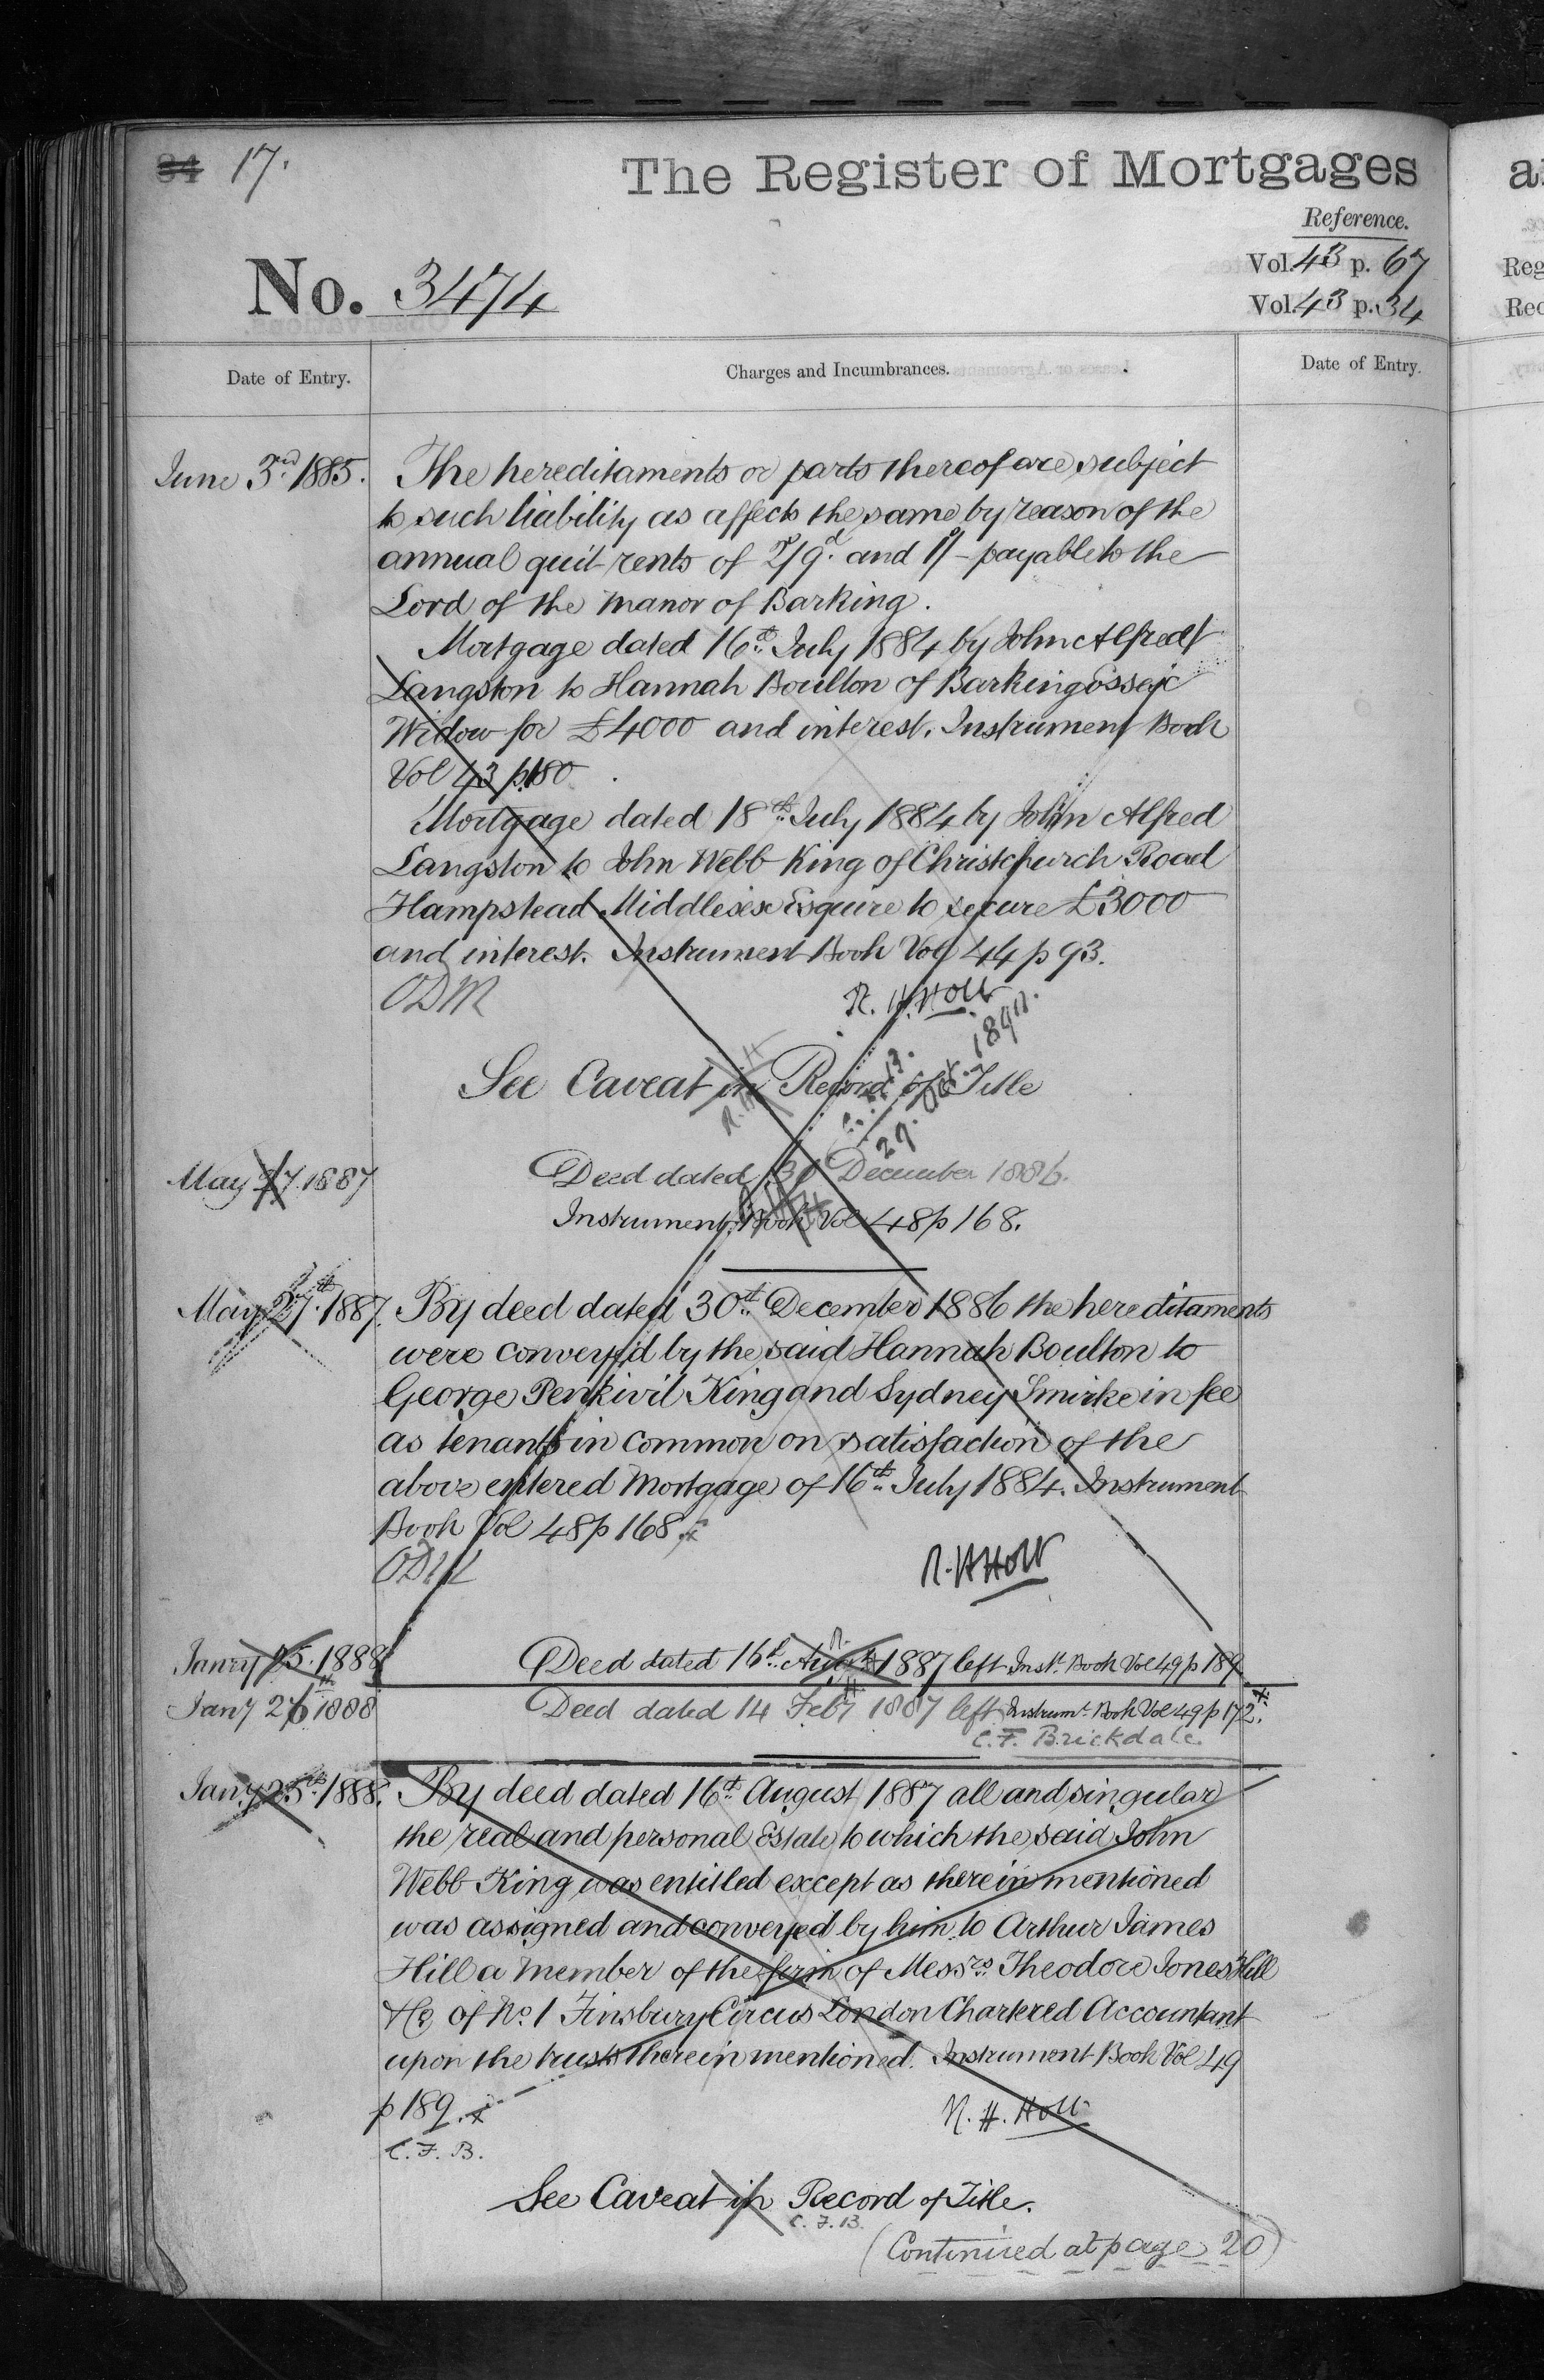 84 17.
The Register of Mortgages
Reference.
Vol. 43 p. 67
No. 3474
Vol. 43 p. 34
Date of Entry.
Charges and Incumbrances.
Date of Entry.
June 3rd 1885.
The hereditaments or parts thereof are subject
to such liability as affects the same by reason of the
annual quit rents of 2/9d. and 1/- payable to the
Lord of the Manor of Barking.
Mortgage dated 16th July 1884 by John Alfred
Langston to Hannah Boulton of Barking Essex
Widow for £4000 and interest. Instrument Book
Vol 43 p 180
Mortgage dated 18th July 1884 by John Alfred
Langston to John Webb King of Christchurch Road
Hampstead Middlesex Esquire to secure £3000
and interest. Instrument Book Vol 44 p 93.
ODM
R. H. Holt
29. Oct. 1890.
See Caveat in Record of Title
R.H.H
C.F.B.
May 27 1887
Deed dated 30 December 1886.
Instrument Book Vol 48 p 168.
May 27th 1887.
By deed dated 30th December 1886 the hereditaments
were conveyed by the said Hannah Boulton to
George Penkivil King and Sydney Smirke in fee
as tenants in common on satisfaction of the
above entered Mortgage of 16th July 1884. Instrument
Book Vol 48 p 168.
ODM
R. H. Holt
Jany 25. 1888
Deed dated 16th Augt 1887 left Inst. Book Vol 49 p 189
Jany 26 1888
Deed dated 14 Feby 1887 left Instrumt. Book Vol 49 p 172.
C. F. Brickdale.
Jany 25th 1888.
By deed dated 16th August 1887 all and singular
the real and personal Estate to which the said John
Webb King was entitled except as therein mentioned
was assigned and conveyed by him to Arthur James
Hill a member of the firm of Messrs. Theodore Jones Hill
& Co of No. 1 Finsbury Circus London Chartered Accountant
upon the trusts therein mentioned. Instrument Book Vol 49
p 189.
R. H. Holt
C. F. B.
See Caveat in Record of Title.
C. F. B.
(Continued at page 20)
a
Reg
Rec